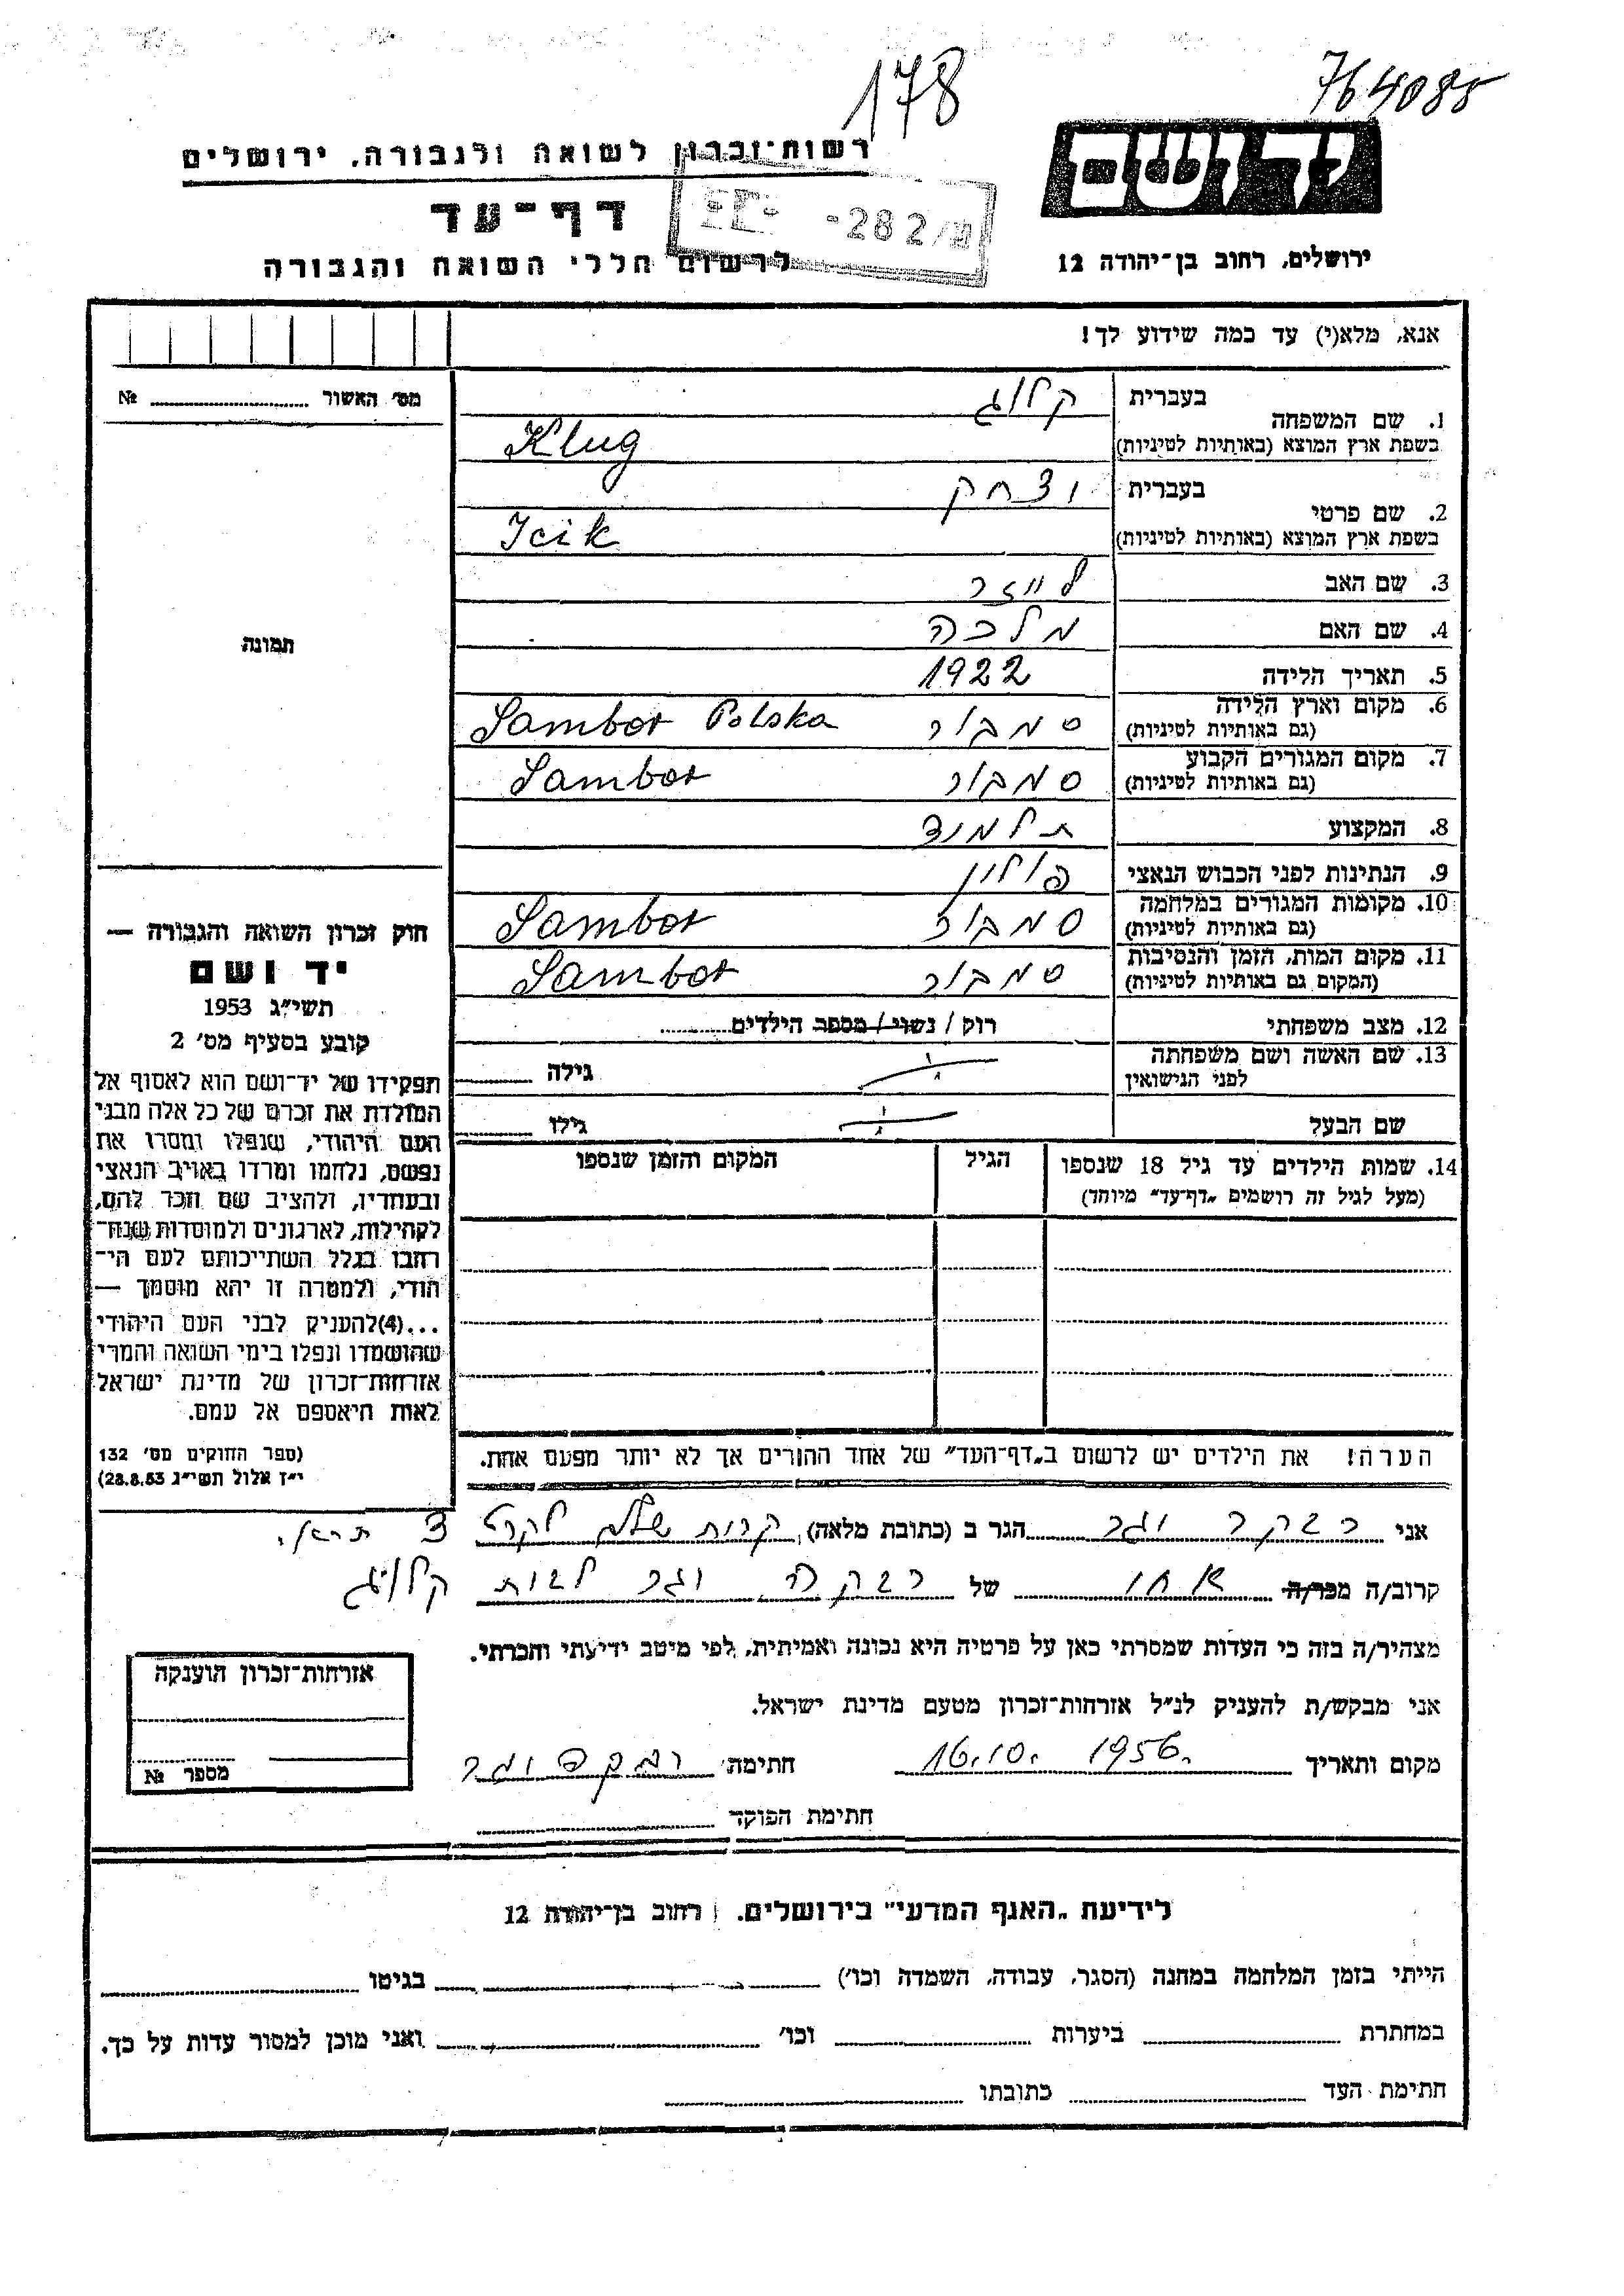 178
764085
רשות־זכרון לשואה ולגבורה, ירושלים
ידושם
דף־עד
282/
לרשום חללי השואה והגבורה
ירושלים, רחוב בן־יהודה 12
אנא, מלא(י) עד כמה שידוע לך!
מס׳ האשור №
1. שם המשפחה
בעברית קלוג
בשפת ארץ המוצא (באותיות לטיניות) Klug
2. שם פרטי
בעברית יצחק
בשפת ארץ המוצא (באותיות לטיניות) Icik
3. שם האב לייזר
4. שם האם מלכה
5. תאריך הלידה 1922
6. מקום וארץ הלידה
(גם באותיות לטיניות) סמבור Sambor Polska
7. מקום המגורים הקבוע
(גם באותיות לטיניות) סמבור Sambor
8. המקצוע תלמיד
9. הנתינות לפני הכבוש הנאצי פולין
10. מקומות המגורים במלחמה
(גם באותיות לטיניות) סמבור Sambor
11. מקום המות, הזמן והנסיבות
(המקום גם באותיות לטיניות) סמבור Sambor
12. מצב משפחתי רוק / נשוי / מספר הילדים
13. שם האשה ושם משפחתה
לפני הנישואין גילה
שם הבעל גילו
14. שמות הילדים עד גיל 18 שנספו הגיל המקום והזמן שנספו
(מעל לגיל זה רושמים „דף־עד״ מיוחד)
תמונה
חוק זכרון השואה והגבורה —
יד ושם
תשי״ג 1953
קובע בסעיף מס׳ 2
תפקידו של יד־ושם הוא לאסוף אל
המולדת את זכרם של כל אלה מבני
העם היהודי, שנפלו ומסרו את
נפשם, נלחמו ומרדו באויב הנאצי
ובעוזריו, ולהציב שם וזכר להם,
לקהילות, לארגונים ולמוסדות שנח־
רחבו בגלל השתייכותם לעם הי־
הודי, ולמטרה זו יהא מוסמך —
...(4)להעניק לבני העם היהודי
שהושמדו ונפלו בימי השואה והמרי
אזרחות־זכרון של מדינת ישראל
לאות היאספם אל עמם.
(ספר החוקים מס׳ 132
י״ז אלול תשי״ג 28.8.53)
הערה! את הילדים יש לרשום ב„דף־העד״ של אחד ההורים אך לא יותר מפעם אחת.
אני רבקה וגר הגר ב (כתובת מלאה)
קרוב/ה מכר/ה אחי של רבקה וגר לבית קלוג
מצהיר/ה בזה כי העדות שמסרתי כאן על פרטיה היא נכונה ואמיתית, לפי מיטב ידיעתי והכרתי.
אני מבקש/ת להעניק לנ״ל אזרחות־זכרון מטעם מדינת ישראל.
מקום ותאריך 16.10. 1956. חתימה רבקה וגר
חתימת הפוקד
אזרחות־זכרון הוענקה
מספר №
לידיעת „האגף המדעי״ בירושלים, רחוב בן־יהודה 12
הייתי בזמן המלחמה במחנה (הסגר, עבודה, השמדה וכו׳) בגיטו
במחתרת ביערות וכו׳ ואני מוכן למסור עדות על כך.
חתימת העד כתובתו